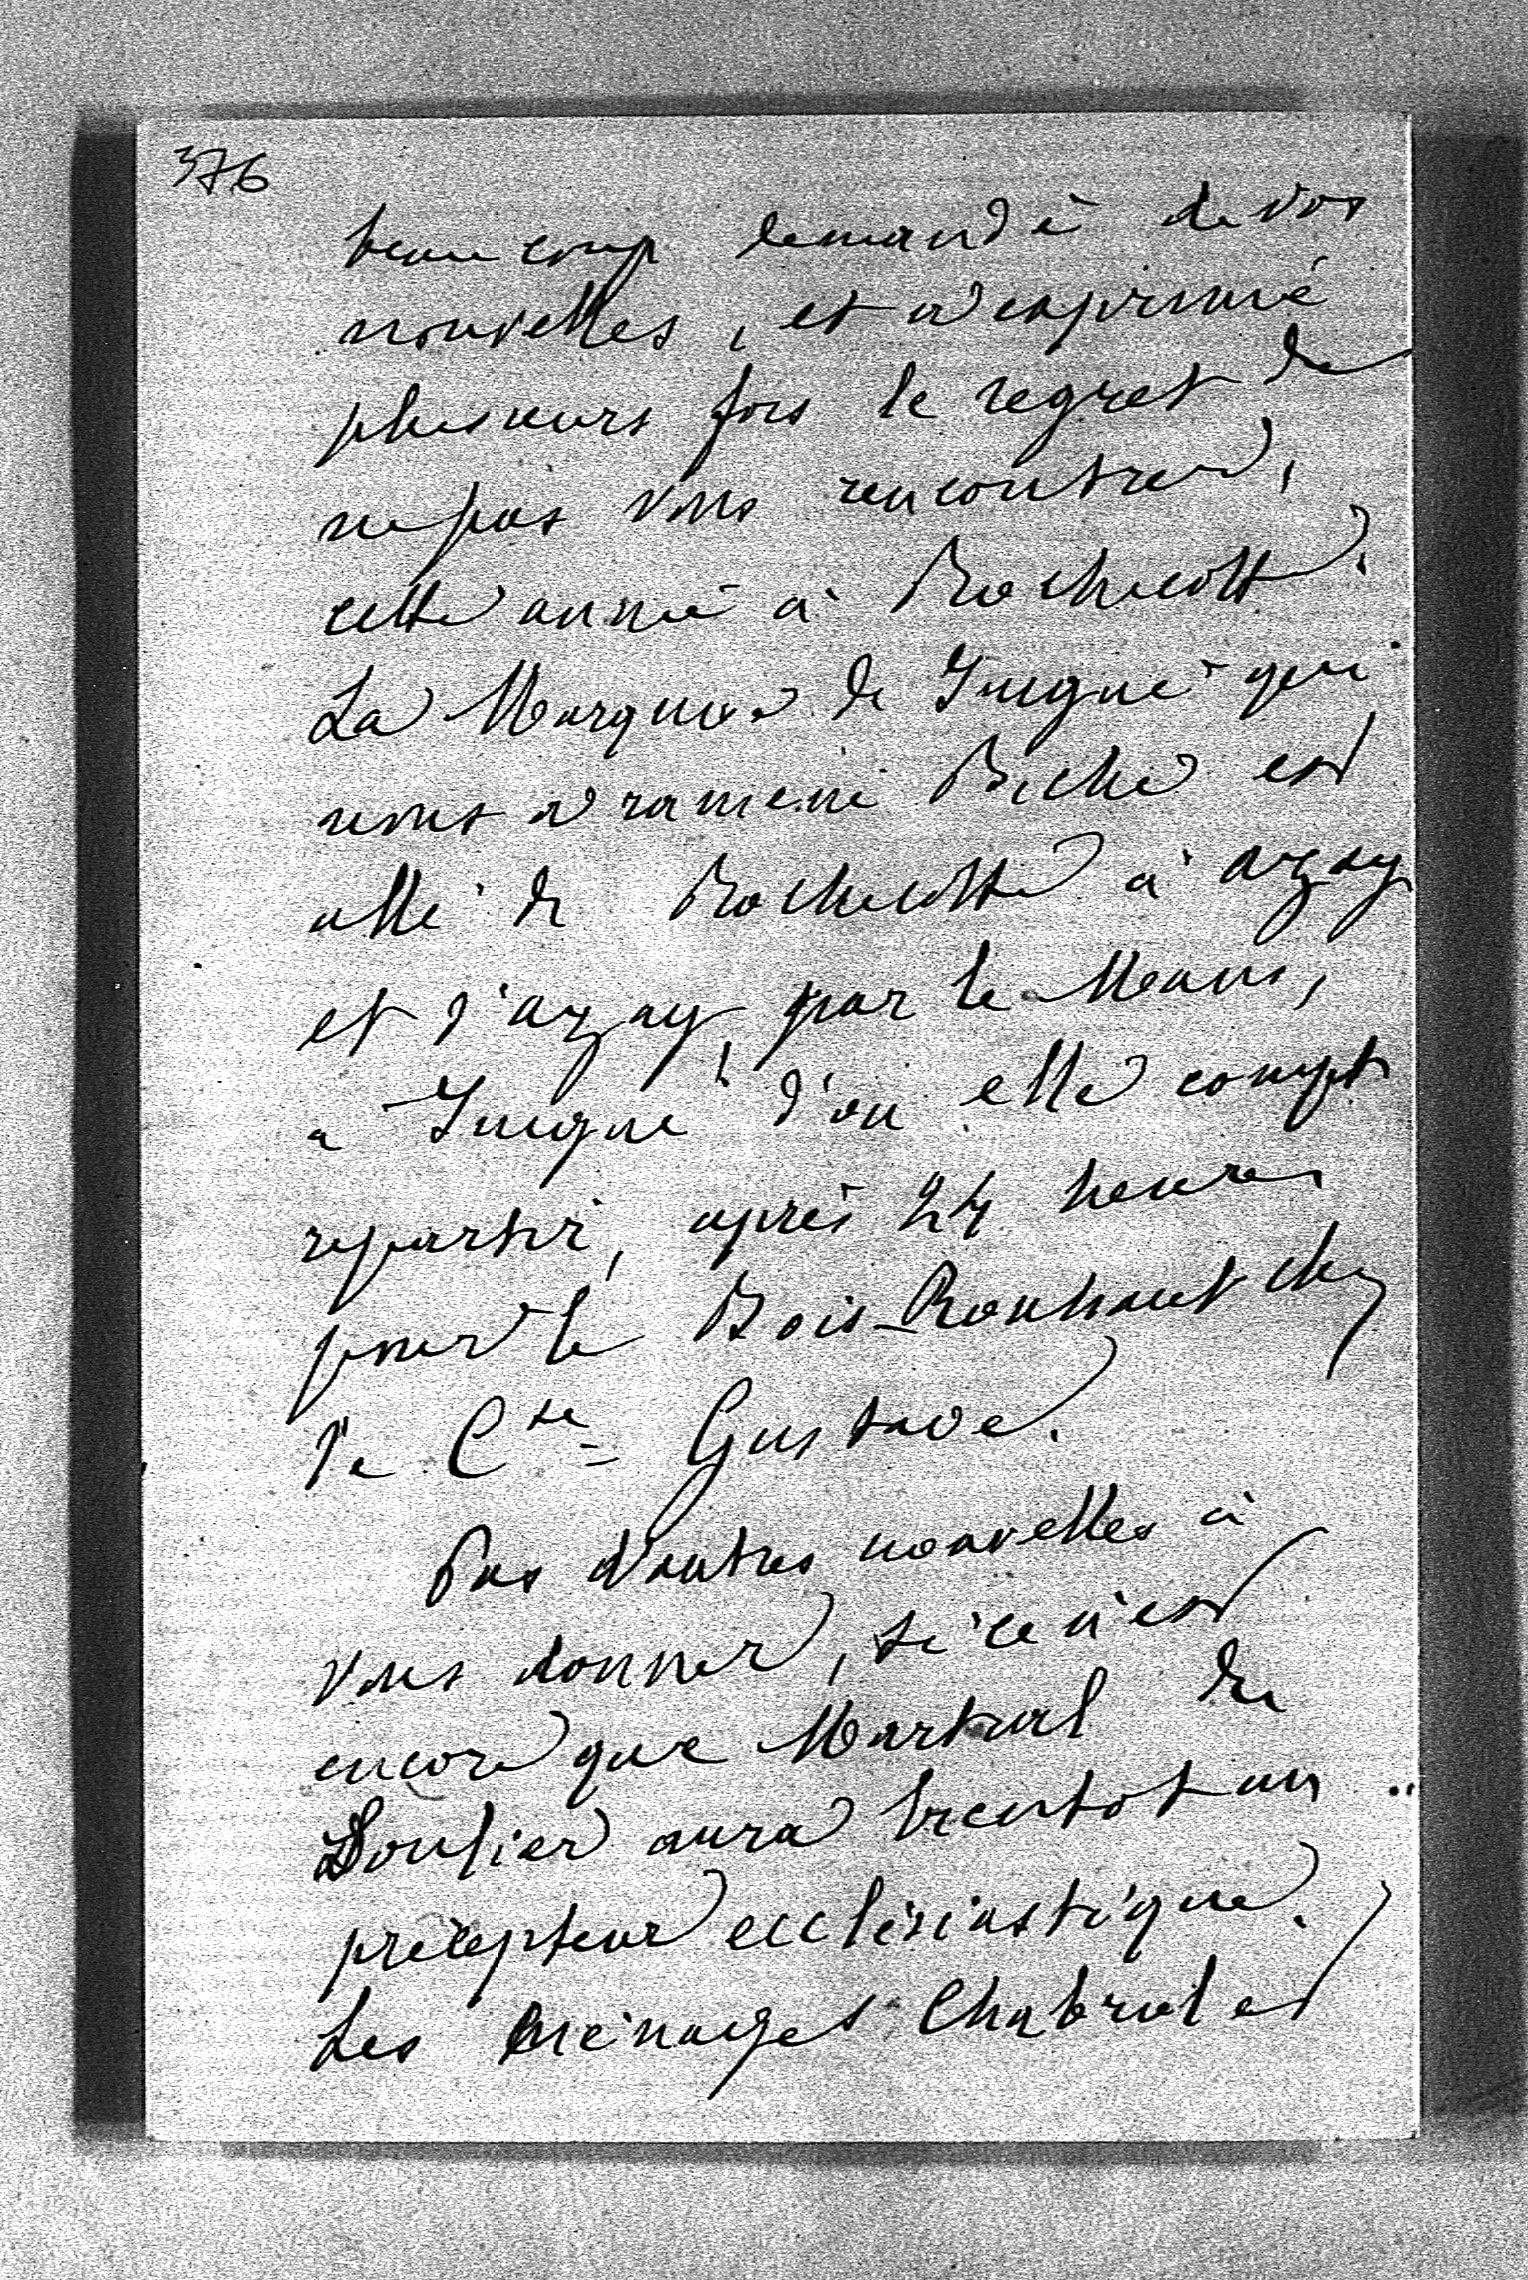 376
beaucoup demandé de vos
nouvelles, et a exprimé
plusieurs fois le regret de
ne pas vous rencontrer,
cette année à Rochecotte.
La Marquise de Juigné qui
nous a ramené Biche est
allé de Rochecotte à Azay
et d'azay, par le Mans,
a Juigné d'où elle compte
repartir, après 24 heures
pour le Bois-Rouhaut chez
le Cte Gustave.
Pas d'autres nouvelles à
vous donner, si ce n'est
encore que Martial de
aura bientot un
précepteur ecclésiastique.
Les ménages Chabrol et